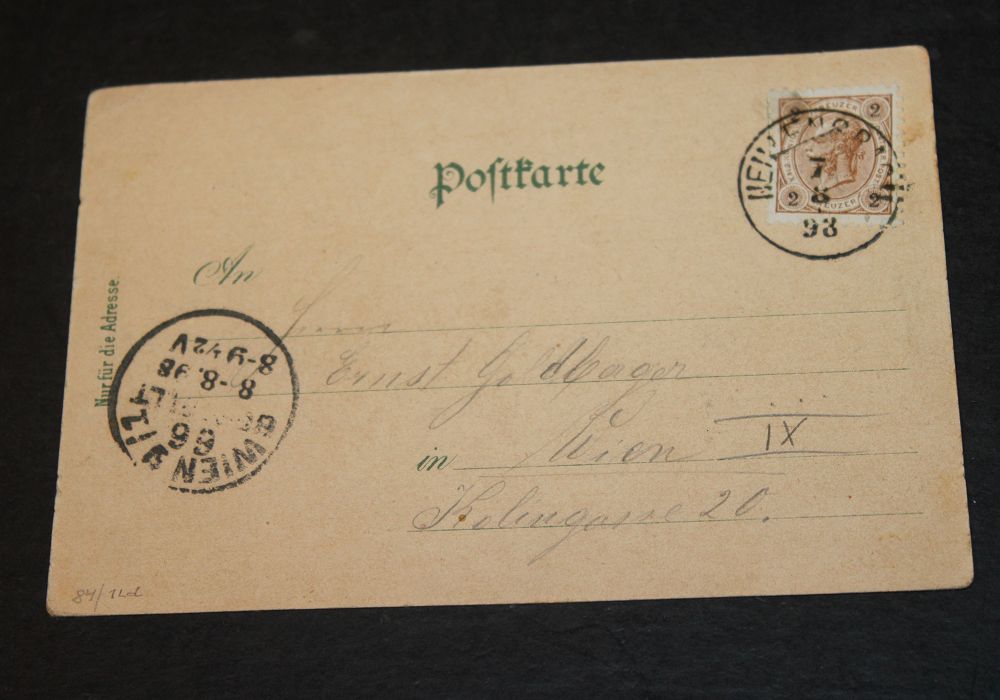 Postkarte
2 KREUZER 2
2 KREUZER 2
7
8
98
An
Nur für die Adresse.
Herrn
Ernst Goldberger
in Wien IX
Kolingasse 20.
WIEN 9/1
66
8-8.98
8-9½V
84/1Ld